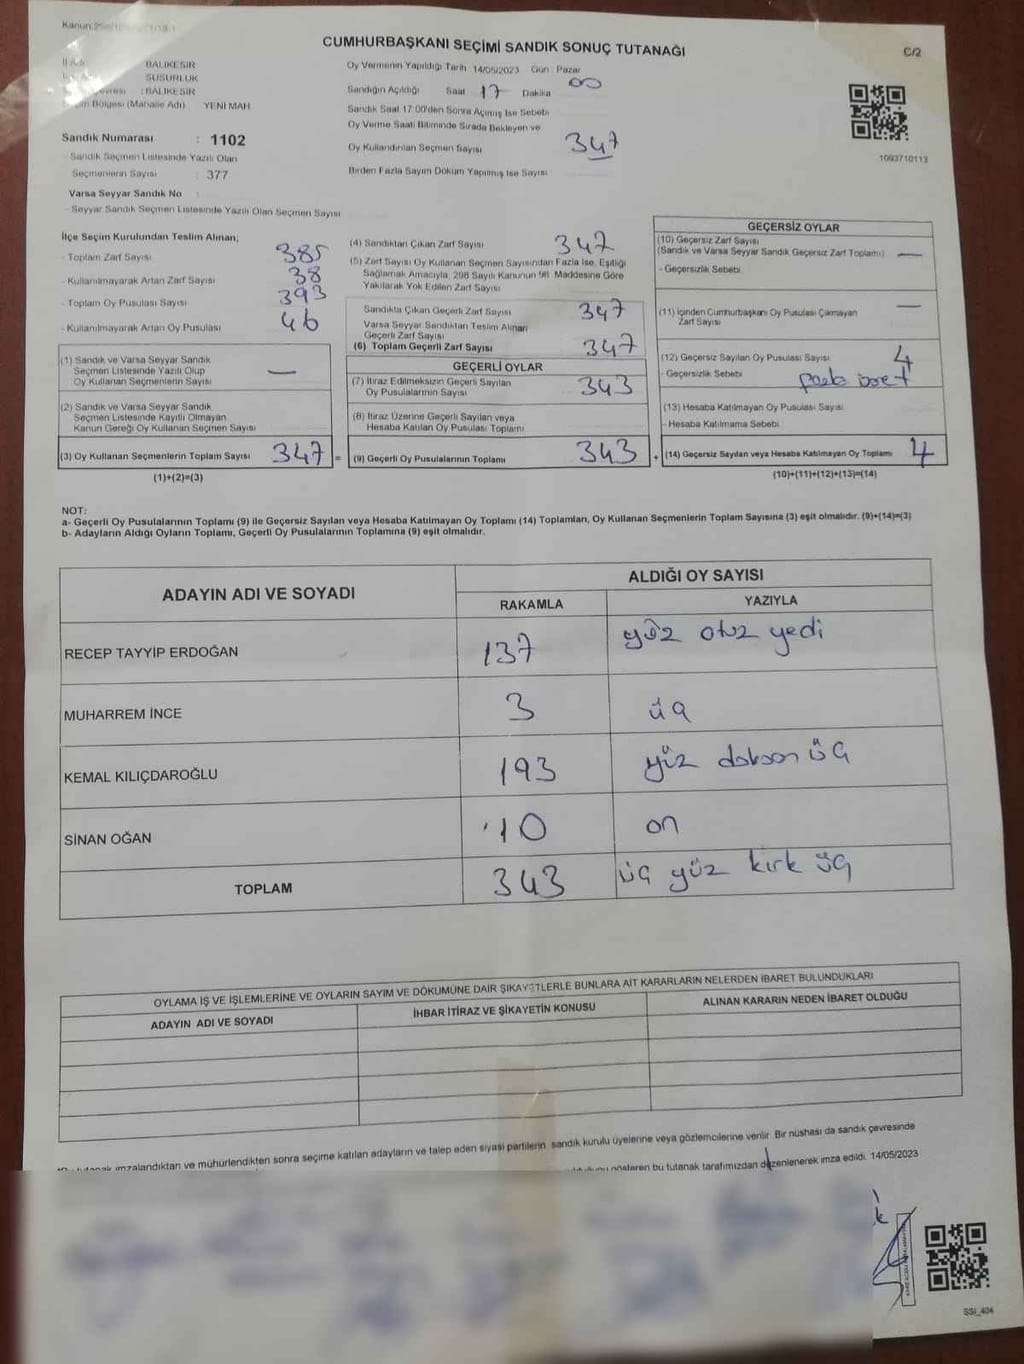 CUMHURBAŞKANI SEÇİMİ SANDIK SONUÇ TUTANAĞI
C/2
BALIKESİR
SUSURLUK
: BALIKESİR
Bölgesi (Mahalle Adı) YENİ MAH
Sandık Numarası : 1102
- Sandık Seçmen Listesinde Yazılı Olan
Seçmenlerin Sayısı : 377
Varsa Seyyar Sandık No
- Seyyar Sandık Seçmen Listesinde Yazılı Olan Seçmen Sayısı
Oy Vermenin Yapıldığı Tarih 14/05/2023 Gün : Pazar
Sandığın Açıldığı Saat 17 Dakika 00
Sandık Saat 17:00'den Sonra Açılmış İse Sebebi
Oy Verme Saati Bitiminde Sırada Bekleyen ve
Oy Kullandırılan Seçmen Sayısı 347
Birden Fazla Sayım Döküm Yapılmış İse Sayısı
1093710113
İlçe Seçim Kurulundan Teslim Alınan;
- Toplam Zarf Sayısı 385
- Kullanılmayarak Artan Zarf Sayısı 38
- Toplam Oy Pusulası Sayısı 393
- Kullanılmayarak Artan Oy Pusulası 46
(1) Sandık ve Varsa Seyyar Sandık
Seçmen Listesinde Yazılı Olup
Oy Kullanan Seçmenlerin Sayısı —
(2) Sandık ve Varsa Seyyar Sandık
Seçmen Listesinde Kayıtlı Olmayan
Kanun Gereği Oy Kullanan Seçmen Sayısı
(3) Oy Kullanan Seçmenlerin Toplam Sayısı 347 =
(1)+(2)=(3)
(4) Sandıktan Çıkan Zarf Sayısı 347
(5) Zarf Sayısı Oy Kullanan Seçmen Sayısından Fazla İse, Eşitliği
Sağlamak Amacıyla, 298 Sayılı Kanunun 98. Maddesine Göre
Yakılarak Yok Edilen Zarf Sayısı
Sandıkta Çıkan Geçerli Zarf Sayısı 347
Varsa Seyyar Sandıktan Teslim Alınan
Geçerli Zarf Sayısı
(6) Toplam Geçerli Zarf Sayısı 347
GEÇERLİ OYLAR
(7) İtiraz Edilmeksizin Geçerli Sayılan
Oy Pusulalarının Sayısı 343
(8) İtiraz Üzerine Geçerli Sayılan veya
Hesaba Katılan Oy Pusulası Toplamı
(9) Geçerli Oy Pusulalarının Toplamı 343 +
GEÇERSİZ OYLAR
(10) Geçersiz Zarf Sayısı
(Sandık ve Varsa Seyyar Sandık Geçersiz Zarf Toplamı) —
- Geçersizlik Sebebi
(11) İçinden Cumhurbaşkanı Oy Pusulası Çıkmayan
Zarf Sayısı —
(12) Geçersiz Sayılan Oy Pusulası Sayısı 4
- Geçersizlik Sebebi
(13) Hesaba Katılmayan Oy Pusulası Sayısı
- Hesaba Katılmama Sebebi
(14) Geçersiz Sayılan veya Hesaba Katılmayan Oy Toplamı 4
(10)+(11)+(12)+(13)=(14)
NOT:
a- Geçerli Oy Pusulalarının Toplamı (9) ile Geçersiz Sayılan veya Hesaba Katılmayan Oy Toplamı (14) Toplamları, Oy Kullanan Seçmenlerin Toplam Sayısına (3) eşit olmalıdır. (9)+(14)=(3)
b- Adayların Aldığı Oyların Toplamı, Geçerli Oy Pusulalarının Toplamına (9) eşit olmalıdır.
ADAYIN ADI VE SOYADI
ALDIĞI OY SAYISI
RAKAMLA YAZIYLA
RECEP TAYYİP ERDOĞAN 137 yüz otuz yedi
MUHARREM İNCE 3 üç
KEMAL KILIÇDAROĞLU 193 yüz doksan üç
SİNAN OĞAN 10 on
TOPLAM 343 üç yüz kırk üç
OYLAMA İŞ VE İŞLEMLERİNE VE OYLARIN SAYIM VE DÖKÜMÜNE DAİR ŞİKAYETLERLE BUNLARA AİT KARARLARIN NELERDEN İBARET BULUNDUKLARI
ADAYIN ADI VE SOYADI İHBAR İTİRAZ VE ŞİKAYETİN KONUSU ALINAN KARARIN NEDEN İBARET OLDUĞU
imzalandıktan ve mühürlendikten sonra seçime katılan adayların ve talep eden siyasi partilerin sandık kurulu üyelerine veya gözlemcilerine verilir. Bir nüshası da sandık çevresinde
gösteren bu tutanak tarafımızdan düzenlenerek imza edildi. 14/05/2023
SSI_404